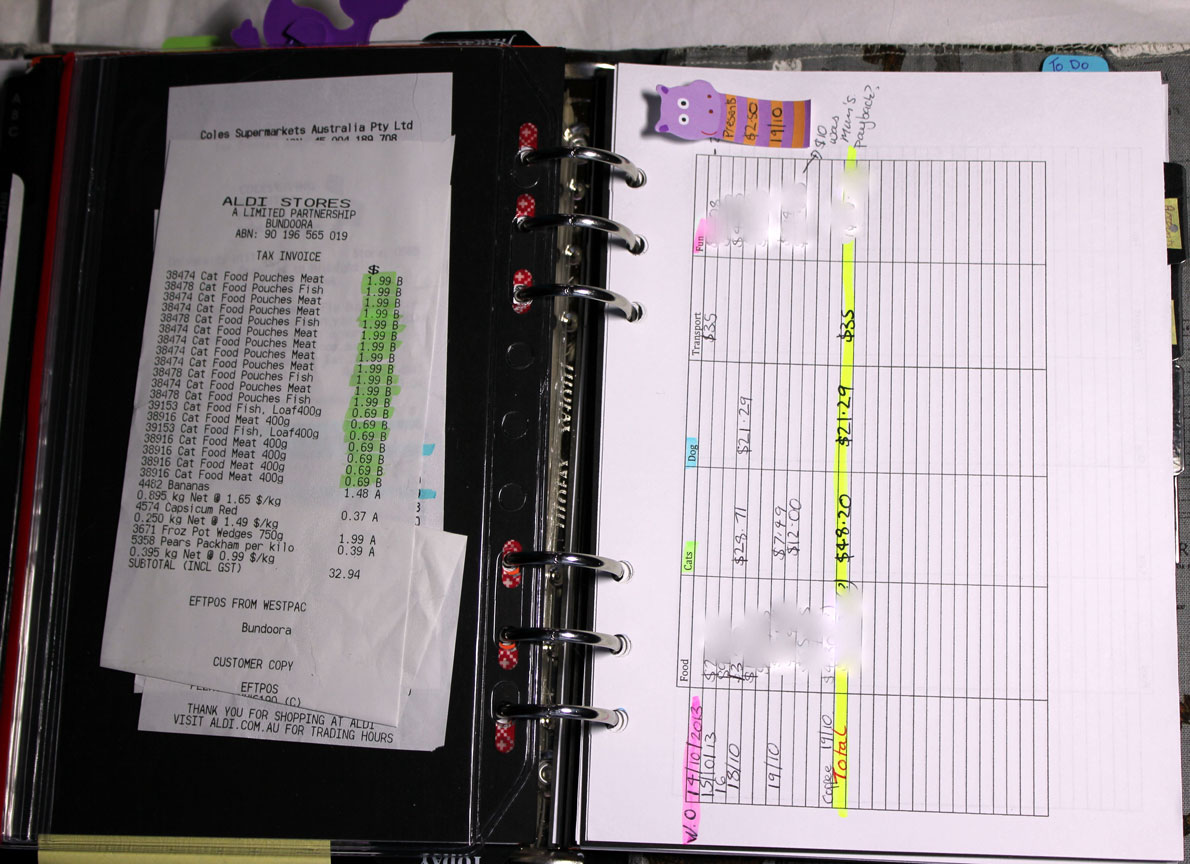 Coles Supermarkets Australia Pty Ltd
ALDI STORES
A LIMITED PARTNERSHIP
BUNDOORA
ABN: 90 196 565 019
TAX INVOICE
$
38474 Cat Food Pouches Meat 1.99 B
38478 Cat Food Pouches Fish 1.99 B
38474 Cat Food Pouches Meat 1.99 B
38474 Cat Food Pouches Meat 1.99 B
38478 Cat Food Pouches Fish 1.99 B
38474 Cat Food Pouches Meat 1.99 B
38474 Cat Food Pouches Meat 1.99 B
38474 Cat Food Pouches Meat 1.99 B
38474 Cat Food Pouches Meat 1.99 B
38478 Cat Food Pouches Fish 1.99 B
38474 Cat Food Pouches Meat 1.99 B
38478 Cat Food Pouches Fish 1.99 B
39153 Cat Food Fish, Loaf400g 0.69 B
38916 Cat Food Meat 400g 0.69 B
39153 Cat Food Fish, Loaf400g 0.69 B
38916 Cat Food Meat 400g 0.69 B
38916 Cat Food Meat 400g 0.69 B
38916 Cat Food Meat 400g 0.69 B
38916 Cat Food Meat 400g 0.69 B
4482 Bananas 1.48 A
0.895 kg Net @ 1.65 $/kg
4574 Capsicum Red 0.37 A
0.250 kg Net @ 1.49 $/kg
3671 Froz Pot Wedges 750g 1.99 A
5358 Pears Packham per kilo 0.39 A
0.395 kg Net @ 0.99 $/kg
SUBTOTAL (INCL GST) 32.94
EFTPOS FROM WESTPAC
Bundoora
CUSTOMER COPY
EFTPOS
THANK YOU FOR SHOPPING AT ALDI
VISIT ALDI.COM.AU FOR TRADING HOURS
To Do
Presents
$2.50
19/10
$10
was
Mum's
payback?
W.O 14/10/2013 Food Cats Dog Transport Fun
15/10/13 $35
16
18/10 $28.71 $21.29
19/10 $7.49
$12.00
Coffee 19/10
Total $48.20 $21.29 $35